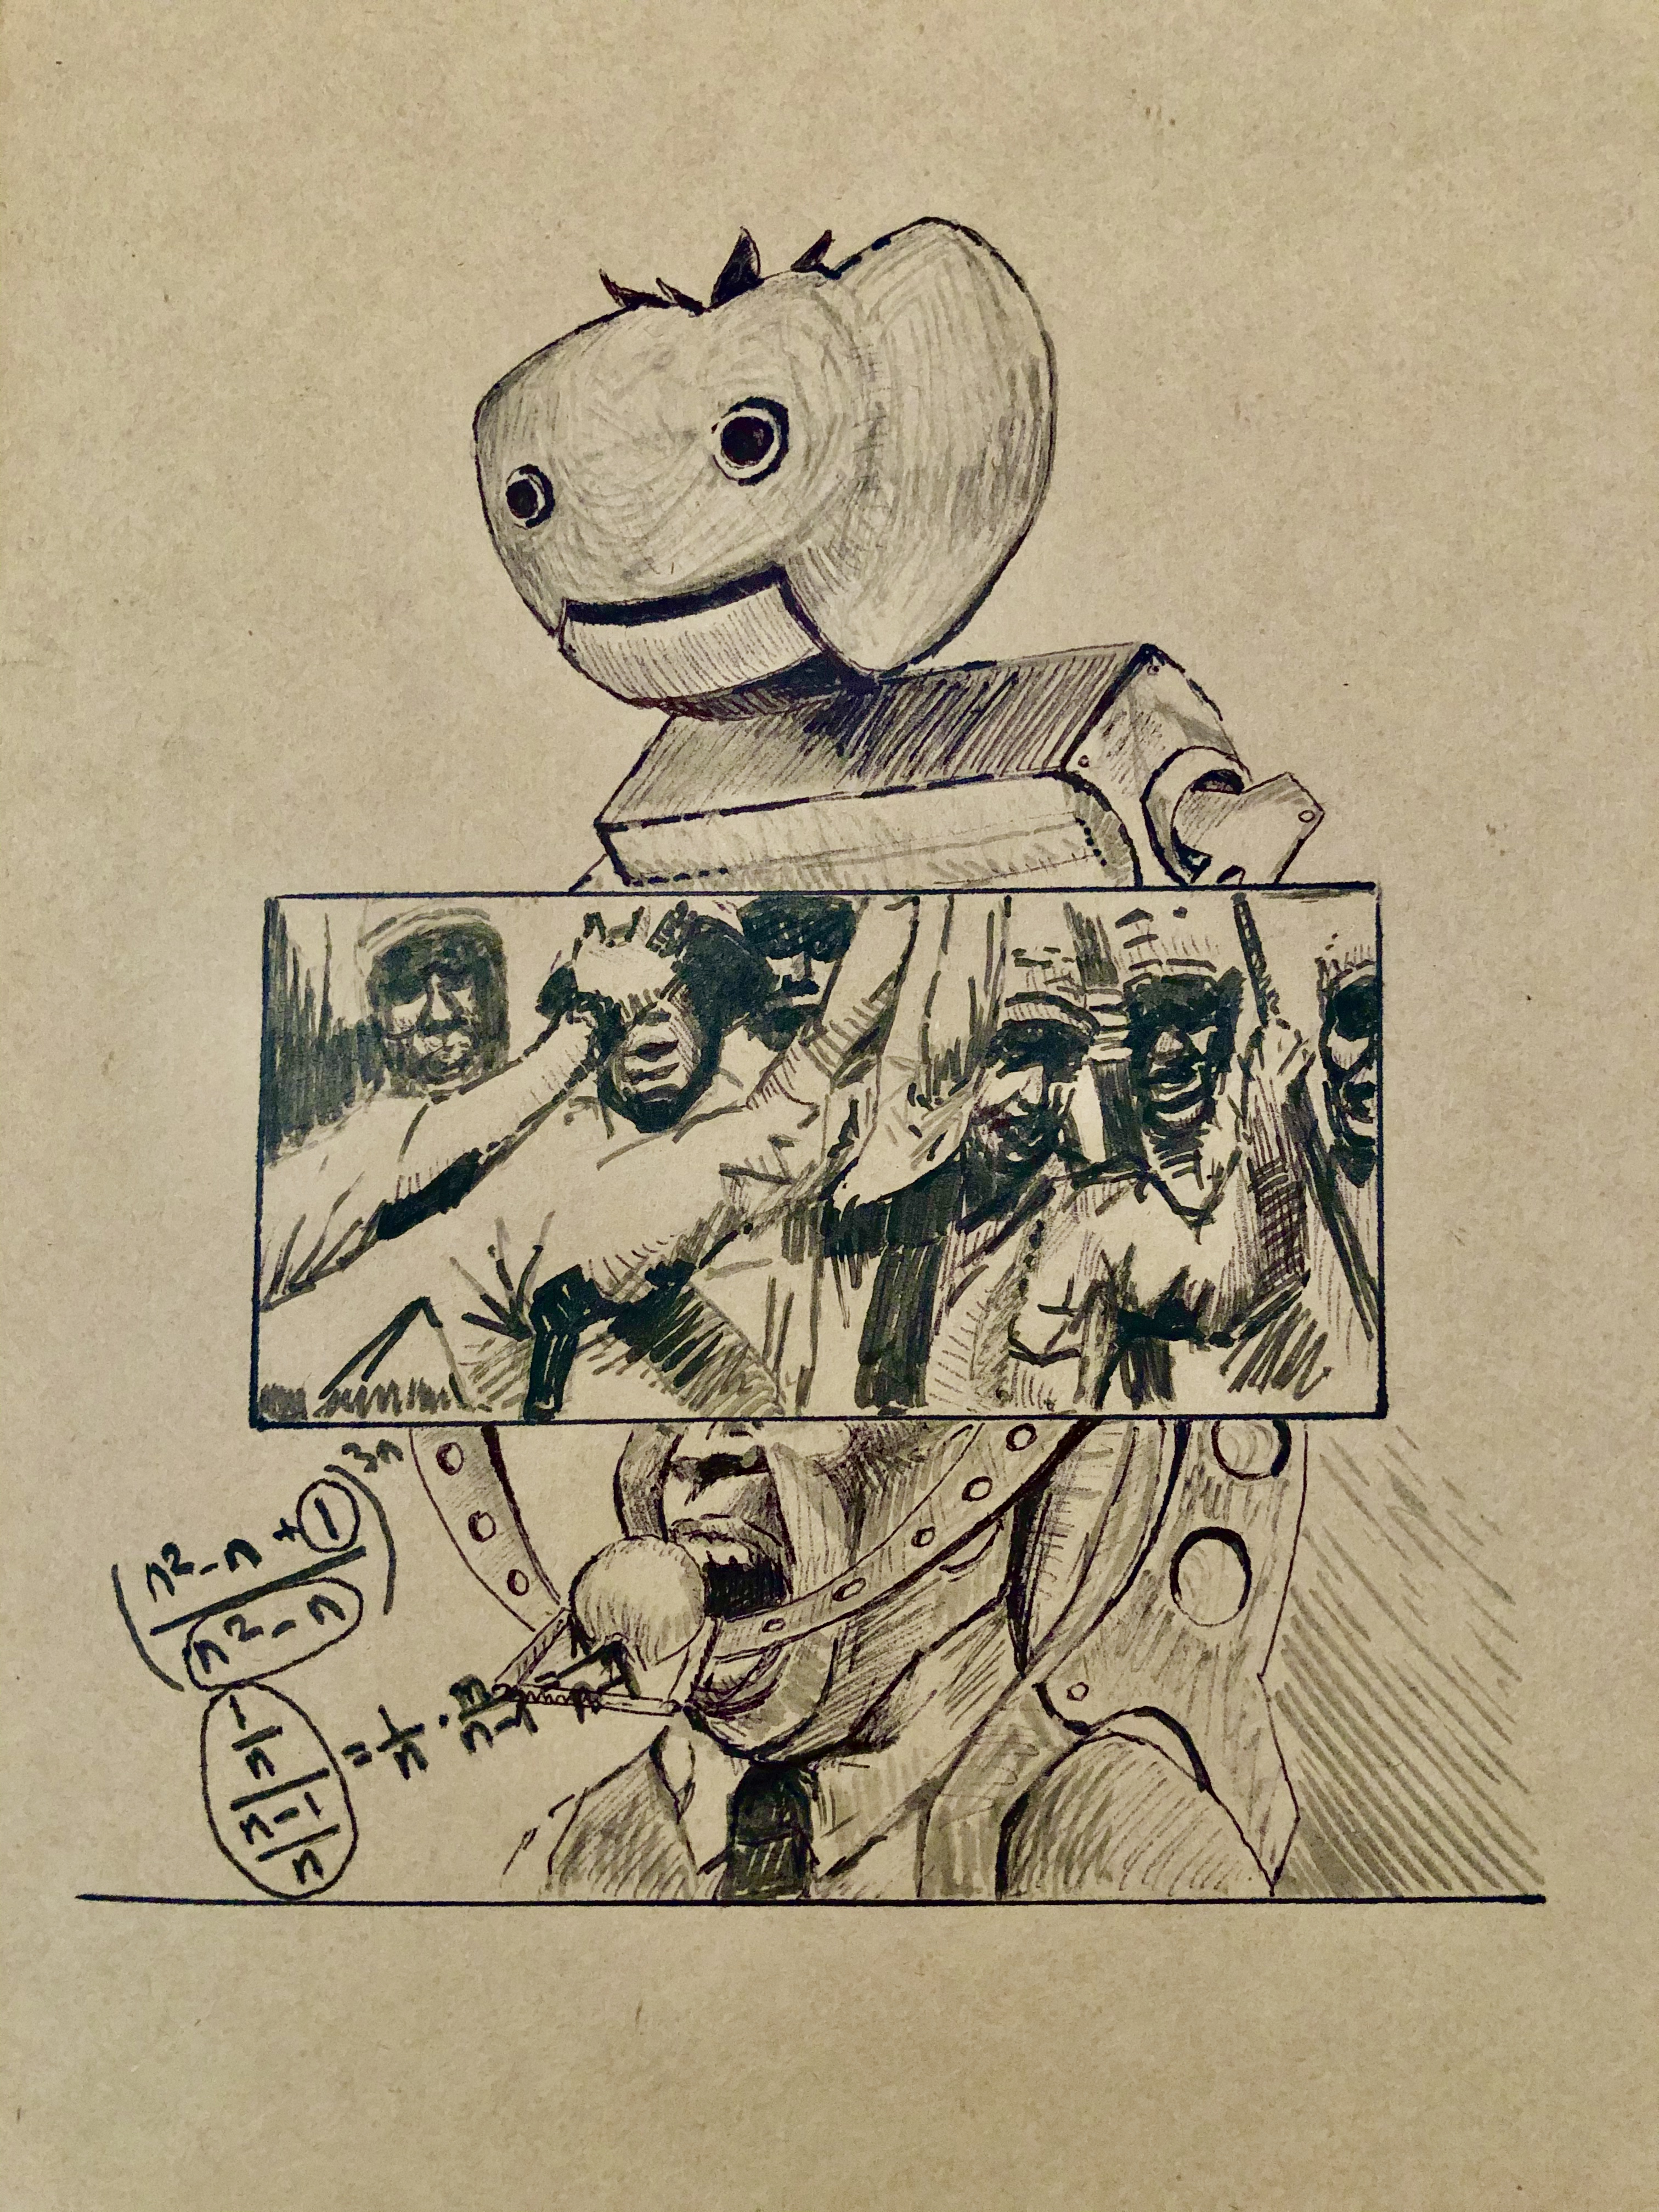 (n²-n+1 / n²-n)³ⁿ
1/n / n-1/n = 1/n · n/n-1